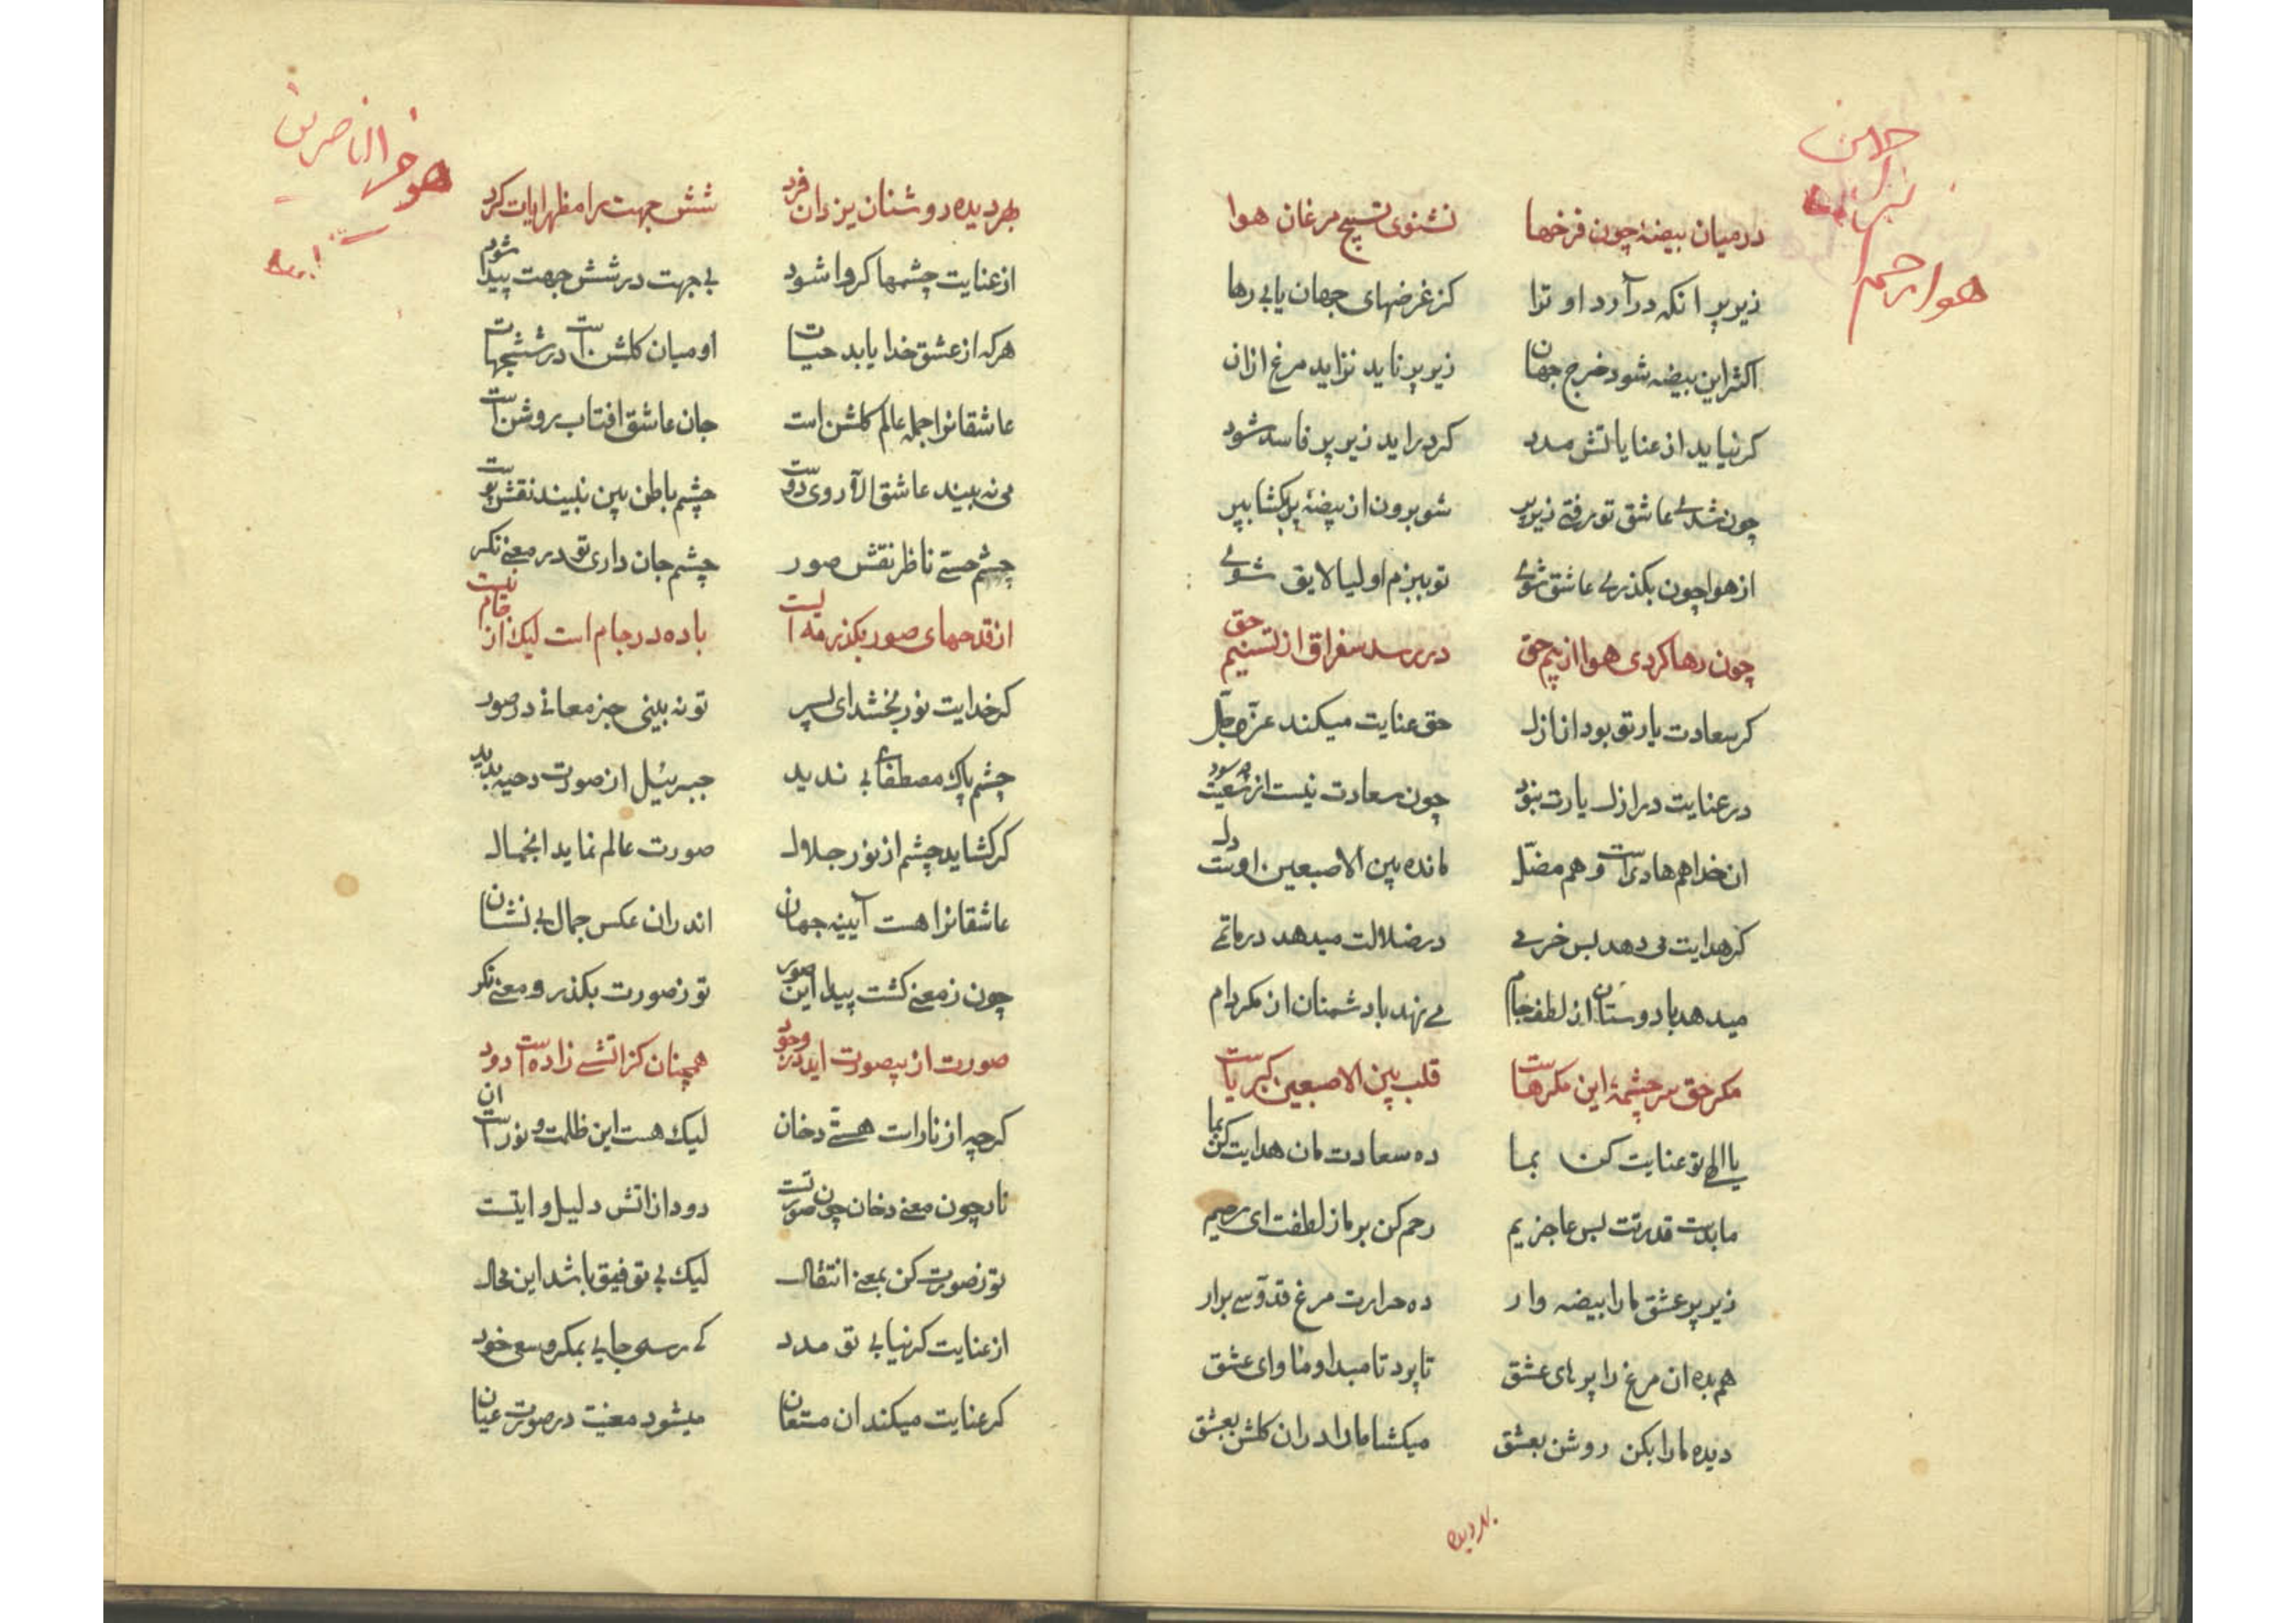 هو ارحم الراحمین
در میان بیضهٔ چون فرخها نشنوی تسبیح مرغان هوا
زیر پر انکه درآرد او ترا کز غرضهای جهان یابی رها
اکثر این بیضه شود خرج جهان زیر پر ناید نزاید مرغ ازان
کر نیاید از عنایاتش مدد کر دراید زیر پر فاسد شود
چون شدی عاشق تو رفتی زیر پر شو برون از بیضه پر بکشا بپر
از هوا چون بکذری عاشق شوی تو ببزم اولیا لایق شوی
چون رها کردی هوا از بیم حق در رسد سغراق از تسنیم حق
کر سعادت یار تو بود از ازل حق عنایت میکند عزّ و جلّ
در عنایت در ازل یارت نبود چون سعادت نیست از سعیت چه سود
ان خدا هم هادی است و هم مضلّ مانده بین الاصبعین اوست دل
کر هدایت می دهد بس خرمی در ضلالت میدهد در ماتمی
میدهد با دوستان از لطف جام می نهد با دشمنان از مکر دام
مکر حق سرچشمهٔ این مکرهاست قلب بین الاصبعین کبریاست
یا الهی تو عنایت کن بما ده سعادت مان هدایت کن بما
ما بدست قدرتت بس عاجزیم رحم کن بر ما ز لطفت ای رحیم
زیر پر عشق ما را بیضه وار ده حرارت مرغ قدّوسی برار
هم بده ان مرغ را پر های عشق تا پرد تا مبدا و ماوای عشق
دیده ما را بکن روشن بعشق میکشا ما را در ان کلشن بعشق
بهر دیده
هو خیر الناصرین
بهر دیده روشنان یزدان فرد شش جهت را مظهر ایات کرد
از عنایت چشمها کر وا شود بی جهت در شش جهت پیدا شود
هر که از عشق خدا یابد حیات او میان کلشن است در ششجهات
عاشقانرا جمله عالم کلشن است جان عاشق افتاب روشن است
می نه بیند عاشق الا روی دوست چشم باطن بین نبیند نقش پوست
چشم حسّی ناظر نقش صور چشم جان داری تو در معنی نکر
از قدحهای صور بکذر مه ایست باده در جام است لیک از جام نیست
کر خدایت نور بخشد ای پسر تو نه بینی جز معانی در صور
چشم پاک مصطفای بی ندید جبرئیل از صورت دحیه بدید
کر کشاید چشم از نور جلال صورت عالم نماید انجمال
عاشقانرا هست آیینه جهان اندران عکس جمال بی نشان
چون ز معنی کشت پیدا این صور تو ز صورت بکذر و معنی نکر
صورت از بیصورت اید در وجود همچنان کز اتشی زاده است دود
کرچه از نار است هستی دخان لیک هست این ظلمت و نور است ان
نار چون معنی دخان چون صورتست دود از اتش دلیل و ایتست
تو ز صورت کن بمعنی انتقال لیک بی توفیق باشد این محال
از عنایت کر نیابی تو مدد کی رسی جایی بمکر و سعی خود
کر عنایت میکند ان مستعان میشود معنیت در صورت عیان